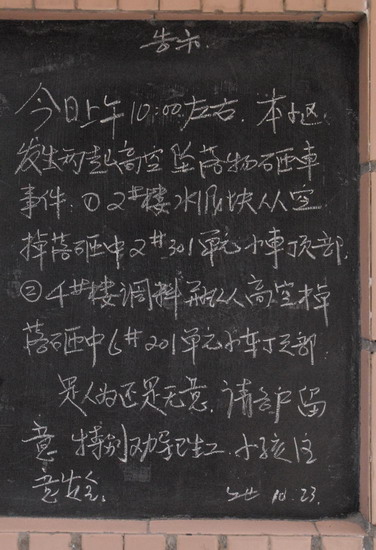 告示
今日上午10:00左右.本小区.
发生两起高空坠落物砸车
事件:①2#楼水泥块从空
掉落砸中2#301单元小车顶部.
②4#楼调料瓶从高空掉
落砸中6#201单元小车顶部.
是人为还是无意.请各户留
意 特别劝导 小孩注
意安全.
10.23.